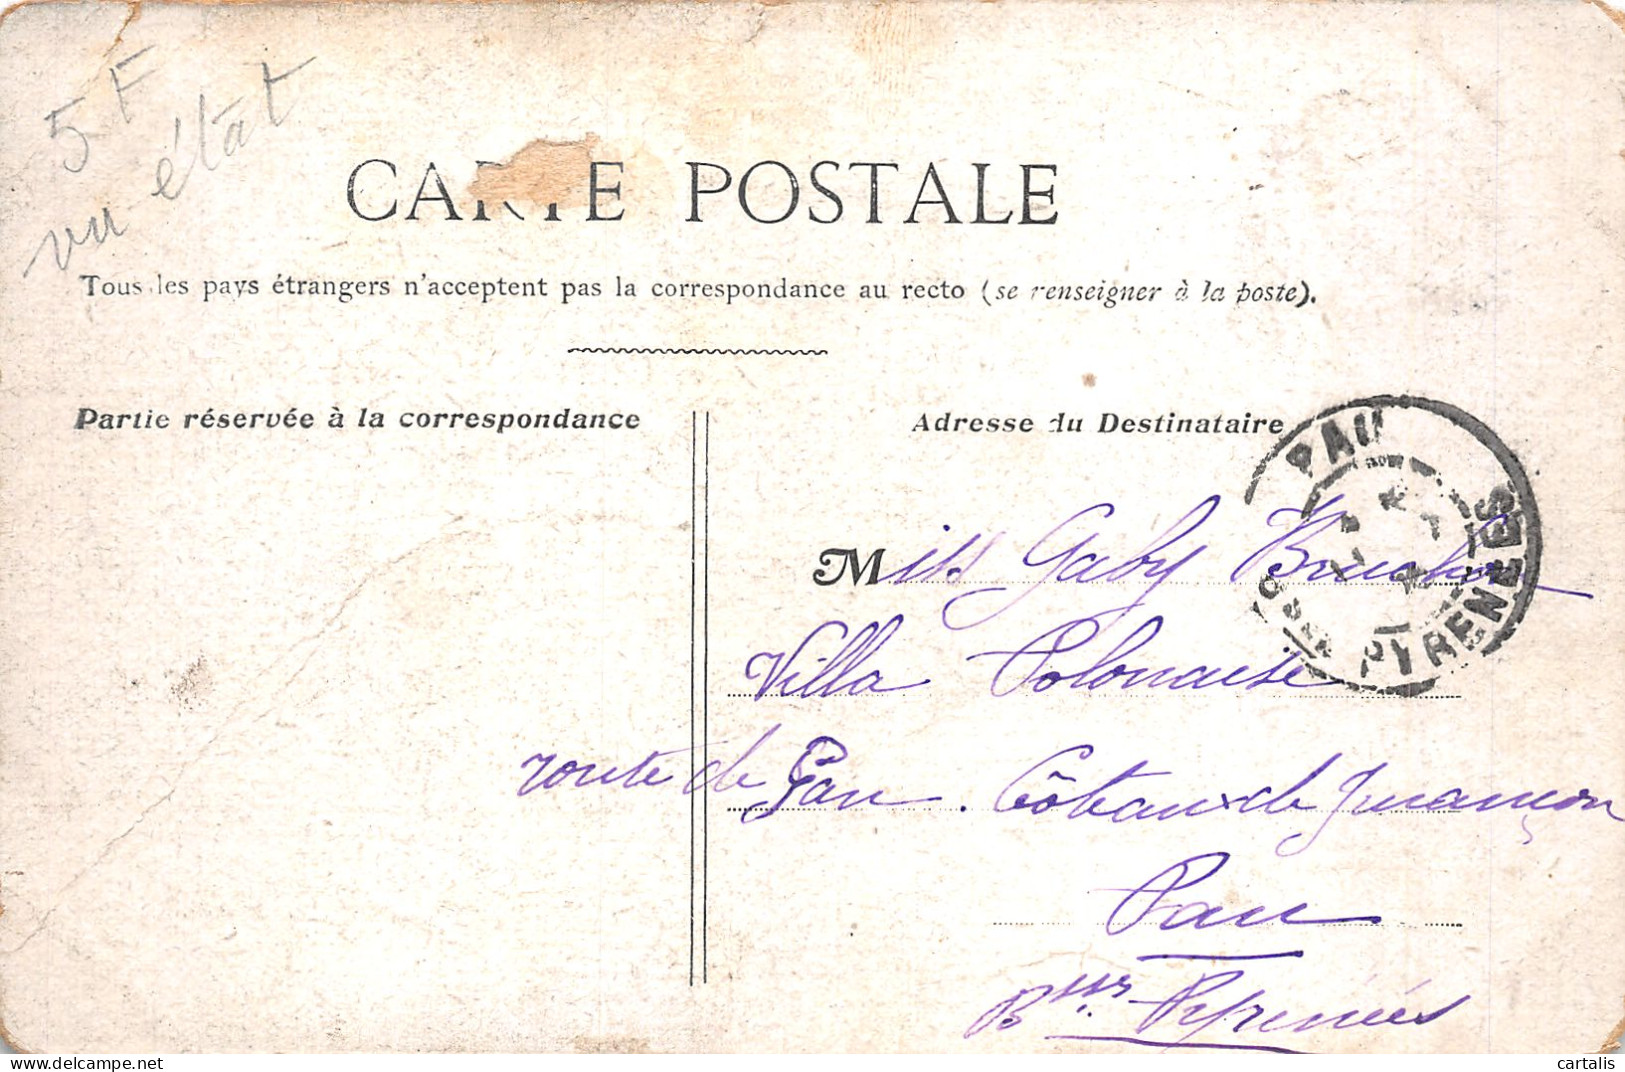 5 F
vu état
CARTE POSTALE
Tous les pays étrangers n'acceptent pas la correspondance au recto (se renseigner à la poste).
Partie réservée à la correspondance
Adresse du Destinataire
PAU
PYRENEES
Miss Gaby
Villa Polonaise
route de Pau. Côteaux de Jurançon
Pau
Bsses Pyrénées
cartalis